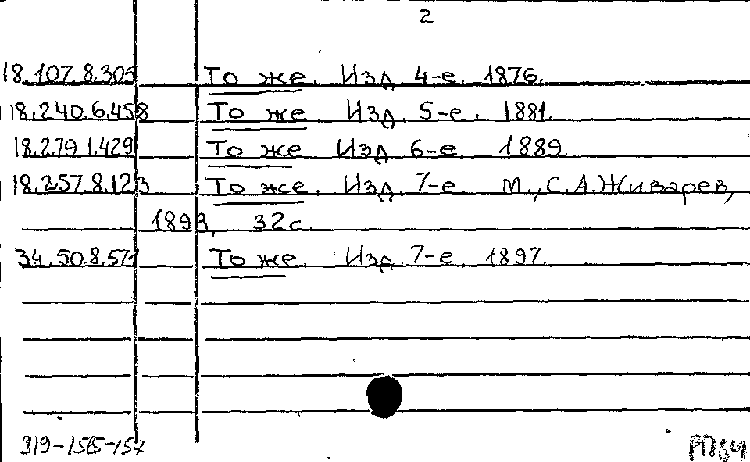 2
18.107.8.305 То же. Изд. 4-е. 1876.
18.240.6.458 То же. Изд. 5-е. 1881.
18.279.1.429 То же Изд. 6-е. 1889
18.257.8.123 То же. Изд. 7-е. М., С.А.Живарев,
1893, 32 с.
34.50.8.571 То же. Изд. 7-е. 1897.
313-1585-157